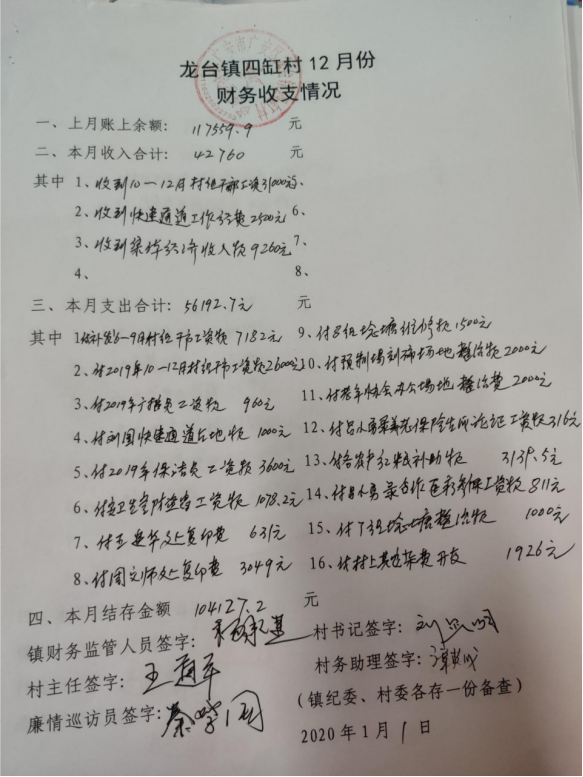 龙台镇四缸村12月份
财务收支情况
一、上月账上余额: 117559.9 元
二、本月收入合计: 42760 元
其中 1、收到10—12月村组干部工资31000元 5、
2、收到快速通道工作经费2500元 6、
3、收到集体经济收入款9260元 7、
4、 8、
三、本月支出合计: 56192.7元 元
其中 1、付补发6-9月村组干部工资款 7182元 9、付8组埝塘维修款1500元
2、付2019年10—12月村组干部工资款26000元 10、付预制场到场地整治款2000元
3、付2019年广播员工资款 960元 11、付老年协会办公场地整治费2000元
4、付到国快速通道占地款 1000元 12、付保险生存论证工资款316元
5、付2019年保洁员工资款 3600元 13、付农户红款补助款 3139.5元
6、付卫生室工资款 1078.2元 14、付录合作医疗保工资款811元
7、付王华处复印费 631元 15、付7组埝塘整治款 1000元
8、付周文师处复印费 3049元 16、付村上其他杂费开支 1926元
四、本月结存金额 104127.2 元
镇财务监管人员签字: 村书记签字:
村主任签字: 王 军 村务助理签字:
廉情巡访员签字: 秦 国 (镇纪委、村委各存一份备查)
2020年1月1日